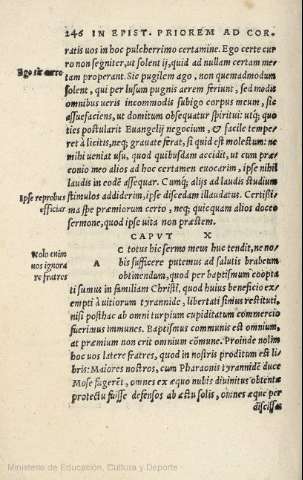 246 IN EPIST. PRIOREM AD COR.
ratis uos in hoc pulcherrimo certamine. Ego certe cur
ro non segniter, ut solent ij, quid ad nullam certam me
Ego sic curro
tam properant. Sic pugilem ago, non quemadmodum
solent, qui per lusum pugnis aerem feriunt, sed modis
omnibus ueris incommodis subigo corpus meum, sic
assuefaciens, ut domitum obsequatur spiritui: utq; quo
ties postularit Euangelij negocium, & facile temper
et à licitis, neq; grauate ferat, si quid est molestum: ne
mihi ueniat usu, quod quibusdam accidit, ut cum præ
conio meo alios ad hoc certamen euocarim, ipse nihil
laudis in eodē assequar. Cumq; alijs ad laudis studium
Ipse reprobus efficiar
stimulos addiderim, ipse discedam illaudatus. Certissi
ma spe præmiorum certo, neq; quicquam alios doceo
sermone, quod ipse uita non præstem.
CAPVT X
Nolo enim uos ignora re fratres
AC totus hic sermo meus huc tendit, ne no
bis sufficere putemus ad salutis brabeum
obtinendum, quod per baptismum coopta
ti sumus in familiam Christi, quod huius beneficio ex
empti à uitiorum tyrannide, libertati sinius restituti,
nisi posthac ab omni turpium cupiditatum cōmercio
fuerimus immunes. Baptismus communis est omnium,
at præmium non erit omnium cōmune. Proinde nolim
hoc uos latere fratres, quod in nostris proditum est li
bris: Maiores nostros, cum Pharaonis tyrannidē duce
Mose fugerēt, omnes ex æquo nubis diuinitus obtentæ
protectu fuisse defensos ab æstu solis, omnes æque per
discissas
Ministerio de Educación, Cultura y Deporte